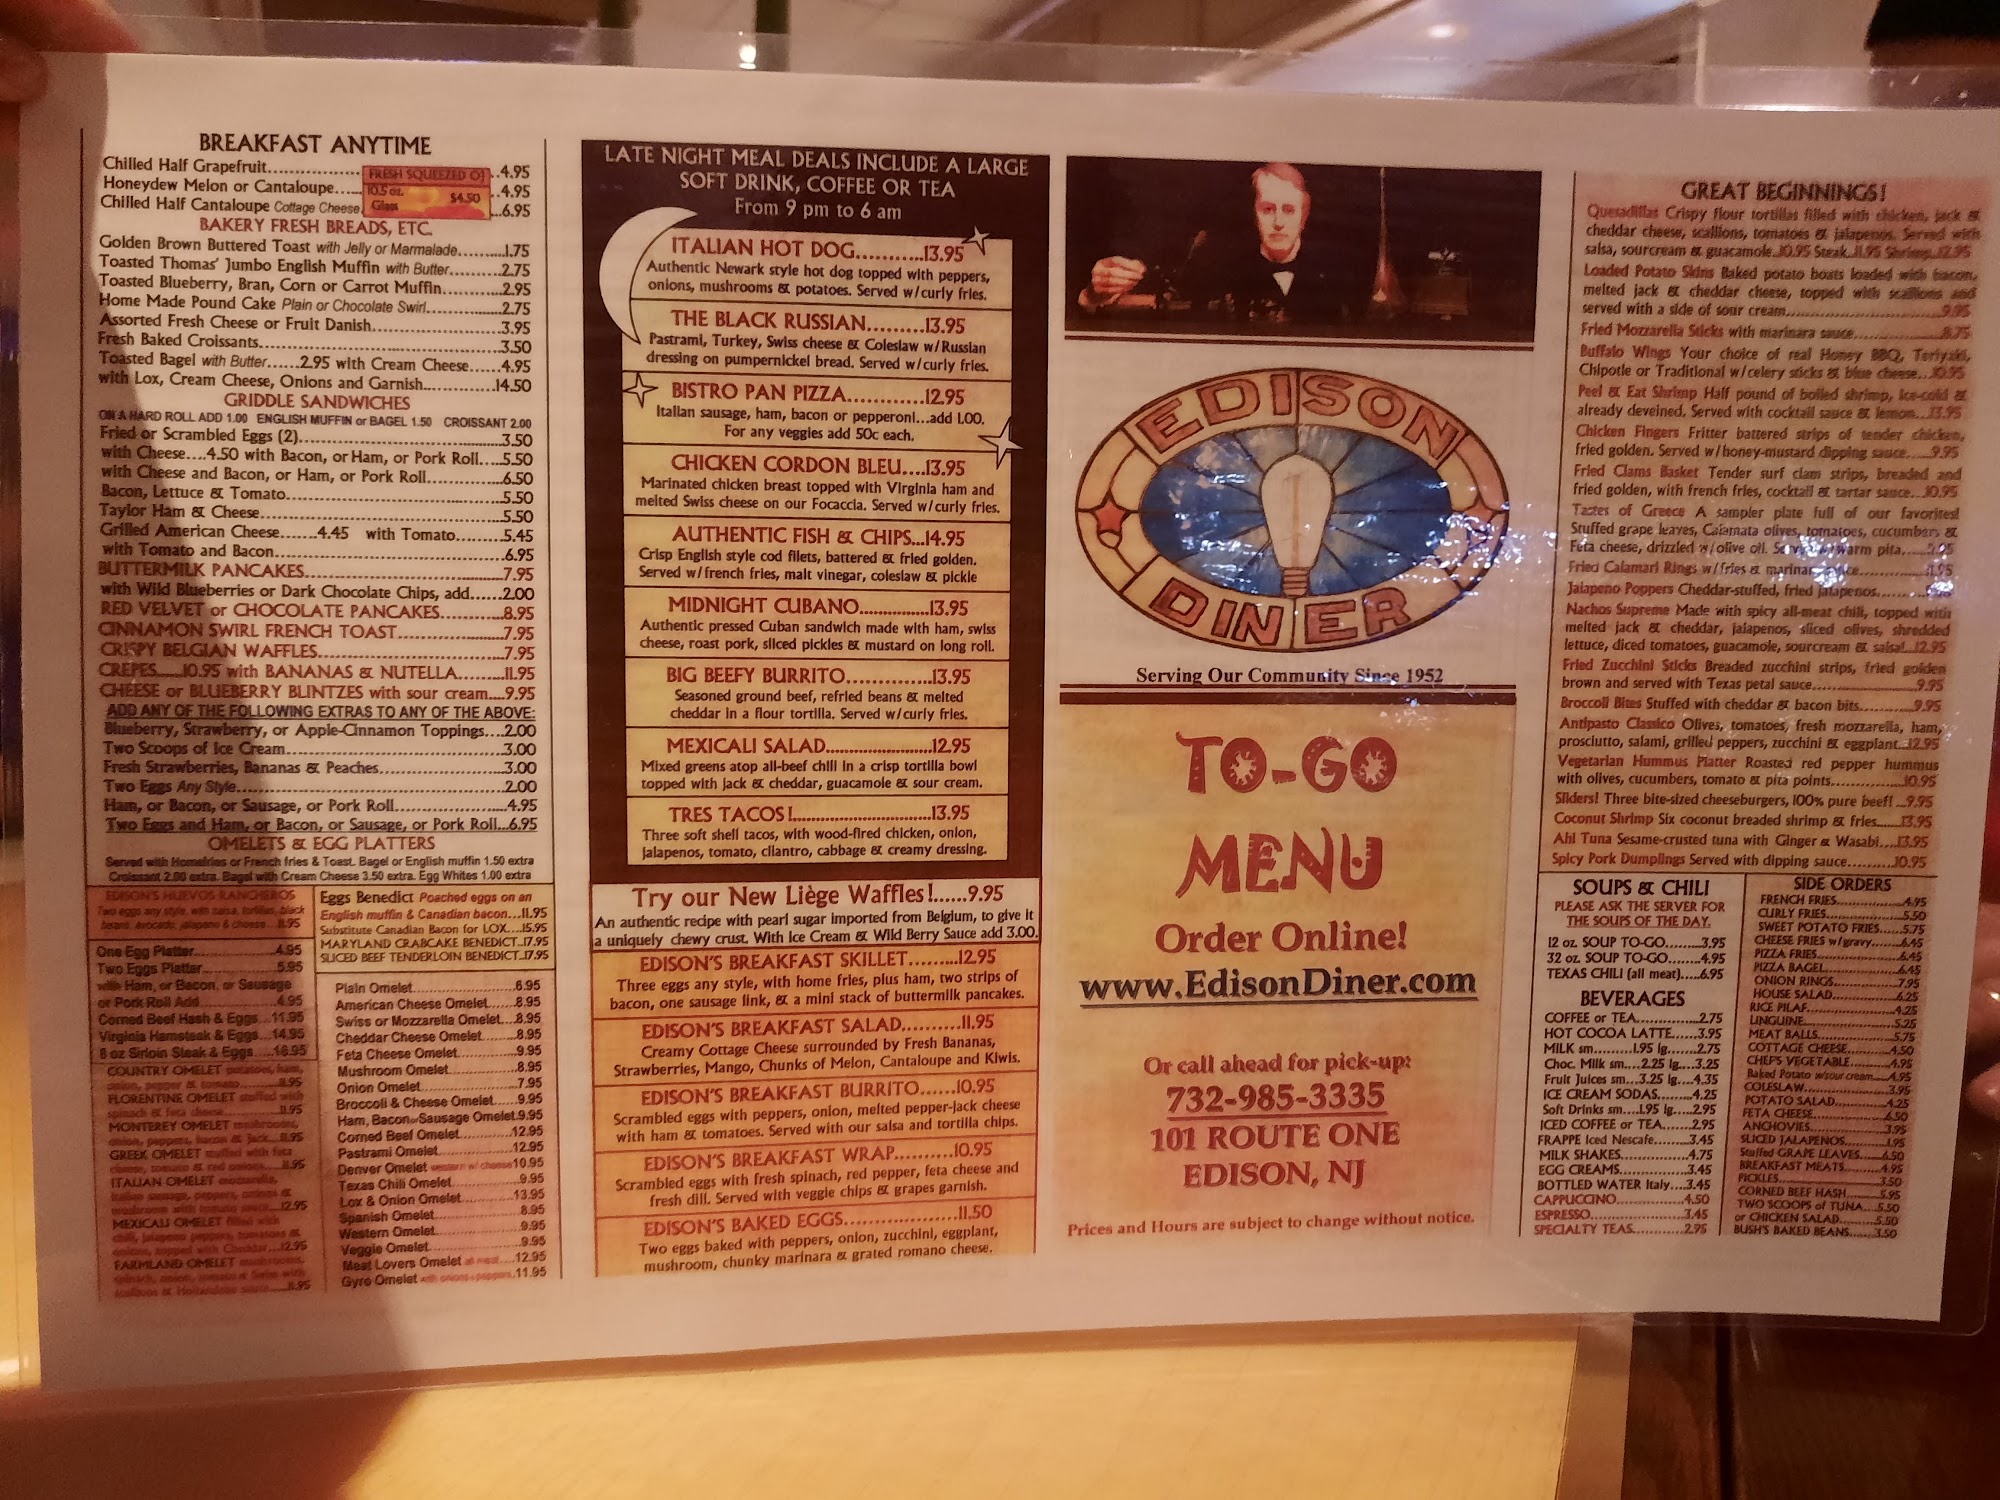 BREAKFAST ANYTIME
Chilled Half Grapefruit..................4.95
Honeydew Melon or Cantaloupe.....4.95
Chilled Half Cantaloupe Cottage Cheese...6.95
FRESH SQUEEZED OJ
10.5 oz. Glass $4.50
BAKERY FRESH BREADS, ETC.
Golden Brown Buttered Toast with Jelly or Marmalade..........1.75
Toasted Thomas' Jumbo English Muffin with Butter.........2.75
Toasted Blueberry, Bran, Corn or Carrot Muffin..........2.95
Home Made Pound Cake Plain or Chocolate Swirl.............2.75
Assorted Fresh Cheese or Fruit Danish....................3.95
Fresh Baked Croissants.....................................3.50
Toasted Bagel with Butter......2.95 with Cream Cheese.....4.95
with Lox, Cream Cheese, Onions and Garnish............14.50
GRIDDLE SANDWICHES
ON A HARD ROLL ADD 1.00 ENGLISH MUFFIN or BAGEL 1.50 CROISSANT 2.00
Fried or Scrambled Eggs (2)..................................3.50
with Cheese....4.50 with Bacon, or Ham, or Pork Roll.....5.50
with Cheese and Bacon, or Ham, or Pork Roll.............6.50
Bacon, Lettuce & Tomato.....................................5.50
Taylor Ham & Cheese..........................................5.50
Grilled American Cheese.......4.45 with Tomato........5.45
with Tomato and Bacon.......................................6.95
BUTTERMILK PANCAKES.................................7.95
with Wild Blueberries or Dark Chocolate Chips, add......2.00
RED VELVET or CHOCOLATE PANCAKES...........8.95
CINNAMON SWIRL FRENCH TOAST..................7.95
CRISPY BELGIAN WAFFLES...............................7.95
CREPES......10.95 with BANANAS & NUTELLA........11.95
CHEESE or BLUEBERRY BLINTZES with sour cream....9.95
ADD ANY OF THE FOLLOWING EXTRAS TO ANY OF THE ABOVE:
Blueberry, Strawberry, or Apple-Cinnamon Toppings....2.00
Two Scoops of Ice Cream.....................................3.00
Fresh Strawberries, Bananas & Peaches.....................3.00
Two Eggs Any Style...........................................2.00
Ham, or Bacon, or Sausage, or Pork Roll..................4.95
Two Eggs and Ham, or Bacon, or Sausage, or Pork Roll...6.95
OMELETS & EGG PLATTERS
Served with Homefries or French fries & Toast. Bagel or English muffin 1.50 extra
Croissant 2.00 extra. Bagel with Cream Cheese 3.50 extra. Egg Whites 1.00 extra
EDISON'S HUEVOS RANCHEROS
Two eggs any style, with salsa, tortillas, black
beans, avocado, jalapeno & cheese 11.95
One Egg Platter....................4.95
Two Eggs Platter..................5.95
with Ham, or Bacon, or Sausage
or Pork Roll Add...................4.95
Corned Beef Hash & Eggs...11.95
Virginia Hamsteak & Eggs....14.95
8 oz Sirloin Steak & Eggs.....18.95
COUNTRY OMELET potatoes, ham,
onion, pepper & tomato..........11.95
FLORENTINE OMELET stuffed with
spinach & feta cheese............11.95
MONTEREY OMELET mushrooms,
onion, peppers, bacon & jack...11.95
GREEK OMELET stuffed with feta
cheese, tomato & red onions...11.95
ITALIAN OMELET mozzarella,
italian sausage, peppers, onions &
mushroom with tomato sauce...12.95
MEXICALI OMELET filled with
chili, jalapeno peppers, tomatoes &
onions, topped with Cheddar...12.95
FARMLAND OMELET mushrooms,
spinach, onion, tomato & Swiss with
scallions & Hollandaise sauce...11.95
Eggs Benedict Poached eggs on an
English muffin & Canadian bacon...11.95
Substitute Canadian Bacon for LOX....15.95
MARYLAND CRABCAKE BENEDICT..17.95
SLICED BEEF TENDERLOIN BENEDICT..17.95
Plain Omelet.........................6.95
American Cheese Omelet.......8.95
Swiss or Mozzarella Omelet....8.95
Cheddar Cheese Omelet........8.95
Feta Cheese Omelet..............9.95
Mushroom Omelet................8.95
Onion Omelet.......................7.95
Broccoli & Cheese Omelet......9.95
Ham, Bacon or Sausage Omelet 9.95
Corned Beef Omelet.............12.95
Pastrami Omelet..................12.95
Denver Omelet western w/ cheese 10.95
Texas Chili Omelet................9.95
Lox & Onion Omelet.............13.95
Spanish Omelet....................8.95
Western Omelet....................9.95
Veggie Omelet......................9.95
Meat Lovers Omelet all meat....12.95
Gyro Omelet with onions & peppers..11.95
LATE NIGHT MEAL DEALS INCLUDE A LARGE
SOFT DRINK, COFFEE OR TEA
From 9 pm to 6 am
ITALIAN HOT DOG...........13.95
Authentic Newark style hot dog topped with peppers,
onions, mushrooms & potatoes. Served w/curly fries.
THE BLACK RUSSIAN.........13.95
Pastrami, Turkey, Swiss cheese & Coleslaw w/Russian
dressing on pumpernickel bread. Served w/curly fries.
BISTRO PAN PIZZA............12.95
Italian sausage, ham, bacon or pepperoni...add 1.00.
For any veggies add 50c each.
CHICKEN CORDON BLEU....13.95
Marinated chicken breast topped with Virginia ham and
melted Swiss cheese on our Focaccia. Served w/curly fries.
AUTHENTIC FISH & CHIPS...14.95
Crisp English style cod filets, battered & fried golden.
Served w/french fries, malt vinegar, coleslaw & pickle
MIDNIGHT CUBANO...............13.95
Authentic pressed Cuban sandwich made with ham, swiss
cheese, roast pork, sliced pickles & mustard on long roll.
BIG BEEFY BURRITO...............13.95
Seasoned ground beef, refried beans & melted
cheddar in a flour tortilla. Served w/curly fries.
MEXICALI SALAD........................12.95
Mixed greens atop all-beef chili in a crisp tortilla bowl
topped with jack & cheddar, guacamole & sour cream.
TRES TACOS!...............................13.95
Three soft shell tacos, with wood-fired chicken, onion,
jalapenos, tomato, cilantro, cabbage & creamy dressing.
Try our New Liège Waffles!......9.95
An authentic recipe with pearl sugar imported from Belgium, to give it
a uniquely chewy crust. With Ice Cream & Wild Berry Sauce add 3.00.
EDISON'S BREAKFAST SKILLET.......12.95
Three eggs any style, with home fries, plus ham, two strips of
bacon, one sausage link, & a mini stack of buttermilk pancakes.
EDISON'S BREAKFAST SALAD..........11.95
Creamy Cottage Cheese surrounded by Fresh Bananas,
Strawberries, Mango, Chunks of Melon, Cantaloupe and Kiwis.
EDISON'S BREAKFAST BURRITO......10.95
Scrambled eggs with peppers, onion, melted pepper-jack cheese
with ham & tomatoes. Served with our salsa and tortilla chips.
EDISON'S BREAKFAST WRAP..........10.95
Scrambled eggs with fresh spinach, red pepper, feta cheese and
fresh dill. Served with veggie chips & grapes garnish.
EDISON'S BAKED EGGS....................11.50
Two eggs baked with peppers, onion, zucchini, eggplant,
mushroom, chunky marinara & grated romano cheese.
EDISON
DINER
Serving Our Community Since 1952
TO-GO
MENU
Order Online!
www.EdisonDiner.com
Or call ahead for pick-up:
732-985-3335
101 ROUTE ONE
EDISON, NJ
Prices and Hours are subject to change without notice.
GREAT BEGINNINGS!
Quesadillas Crispy flour tortillas filled with chicken, jack &
cheddar cheese, scallions, tomatoes & jalapenos. Served with
salsa, sourcream & guacamole..10.95 Steak..11.95 Shrimp..12.95
Loaded Potato Skins Baked potato boats loaded with bacon,
melted jack & cheddar cheese, topped with scallions and
served with a side of sour cream.............................9.95
Fried Mozzarella Sticks with marinara sauce................8.75
Buffalo Wings Your choice of real Honey BBQ, Teriyaki,
Chipotle or Traditional w/celery sticks & blue cheese...10.95
Peel & Eat Shrimp Half pound of boiled shrimp, ice-cold &
already deveined. Served with cocktail sauce & lemon....13.95
Chicken Fingers Fritter battered strips of tender chicken,
fried golden. Served w/honey-mustard dipping sauce.....9.95
Fried Clams Basket Tender surf clam strips, breaded and
fried golden, with french fries, cocktail & tartar sauce...10.95
Tastes of Greece A sampler plate full of our favorites!
Stuffed grape leaves, Calamata olives, tomatoes, cucumbers &
Feta cheese, drizzled w/olive oil. Served w/warm pita.....
Fried Calamari Rings w/fries & marinara sauce...........11.95
Jalapeno Poppers Cheddar-stuffed, fried jalapenos.........
Nachos Supreme Made with spicy all-meat chili, topped with
melted jack & cheddar, jalapenos, sliced olives, shredded
lettuce, diced tomatoes, guacamole, sourcream & salsa!..12.95
Fried Zucchini Sticks Breaded zucchini strips, fried golden
brown and served with Texas petal sauce...................9.95
Broccoli Bites Stuffed with cheddar & bacon bits...........9.95
Antipasto Classico Olives, tomatoes, fresh mozzarella, ham,
prosciutto, salami, grilled peppers, zucchini & eggplant..12.95
Vegetarian Hummus Platter Roasted red pepper hummus
with olives, cucumbers, tomato & pita points..............10.95
Sliders! Three bite-sized cheeseburgers, 100% pure beef! ...9.95
Coconut Shrimp Six coconut breaded shrimp & fries......13.95
Ahi Tuna Sesame-crusted tuna with Ginger & Wasabi....13.95
Spicy Pork Dumplings Served with dipping sauce.........10.95
SOUPS & CHILI
PLEASE ASK THE SERVER FOR
THE SOUPS OF THE DAY.
12 oz. SOUP TO-GO.........3.95
32 oz. SOUP TO-GO........4.95
TEXAS CHILI (all meat).....6.95
BEVERAGES
COFFEE or TEA..............2.75
HOT COCOA LATTE.....3.95
MILK sm.........1.95 lg.......2.75
Choc. Milk sm....2.25 lg....3.25
Fruit Juices sm...3.25 lg....4.35
ICE CREAM SODAS........4.25
Soft Drinks sm....1.95 lg....2.95
ICED COFFEE or TEA......2.95
FRAPPE Iced Nescafe........3.45
MILK SHAKES................4.75
EGG CREAMS.................3.45
BOTTLED WATER Italy....3.45
CAPPUCCINO................4.50
ESPRESSO......................3.45
SPECIALTY TEAS............2.95
SIDE ORDERS
FRENCH FRIES.................4.95
CURLY FRIES...................5.50
SWEET POTATO FRIES......5.75
CHEESE FRIES w/gravy......6.45
PIZZA FRIES....................6.45
PIZZA BAGEL..................6.45
ONION RINGS.................7.95
HOUSE SALAD.................6.25
RICE PILAF......................4.25
LINGUINE.......................5.25
MEAT BALLS....................5.75
COTTAGE CHEESE...........4.50
CHEF'S VEGETABLE..........4.95
Baked Potato w/sour cream....4.95
COLESLAW......................3.95
POTATO SALAD...............4.25
FETA CHEESE...................6.50
ANCHOVIES....................3.95
SLICED JALAPENOS..........1.95
Stuffed GRAPE LEAVES......6.50
BREAKFAST MEATS..........4.95
PICKLES..........................3.50
CORNED BEEF HASH........5.95
TWO SCOOPS of TUNA....5.50
or CHICKEN SALAD.........5.50
BUSH'S BAKED BEANS......3.50